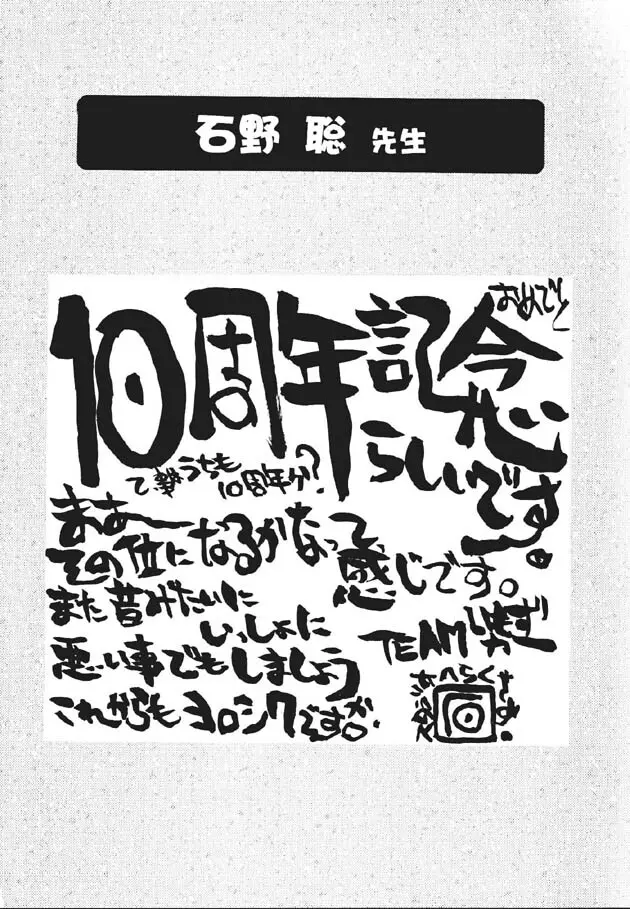 石野 聡 先生
おめでと
10周年記念
らしいです。
うちも
10周年か?
まあー
その位になるかなって
感じです。
また昔みたいに
いっしょに
悪い事でもしましょう
これからもヨロシクですか。
TEAM